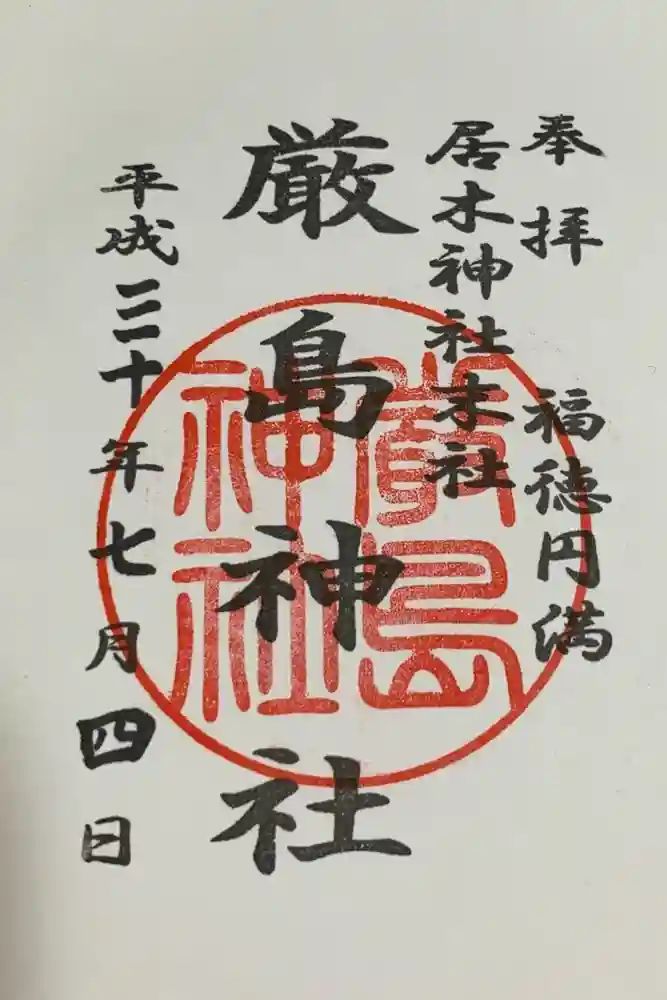 奉拝 福徳円満
居木神社末社
厳島神社
平成三十年七月四日
嚴島神社